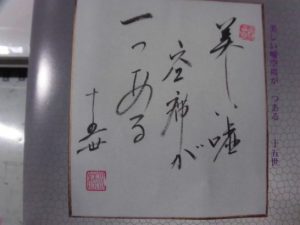 美しい嘘空席が一つある 十五世
美しい嘘
空席が
一つある
十五世